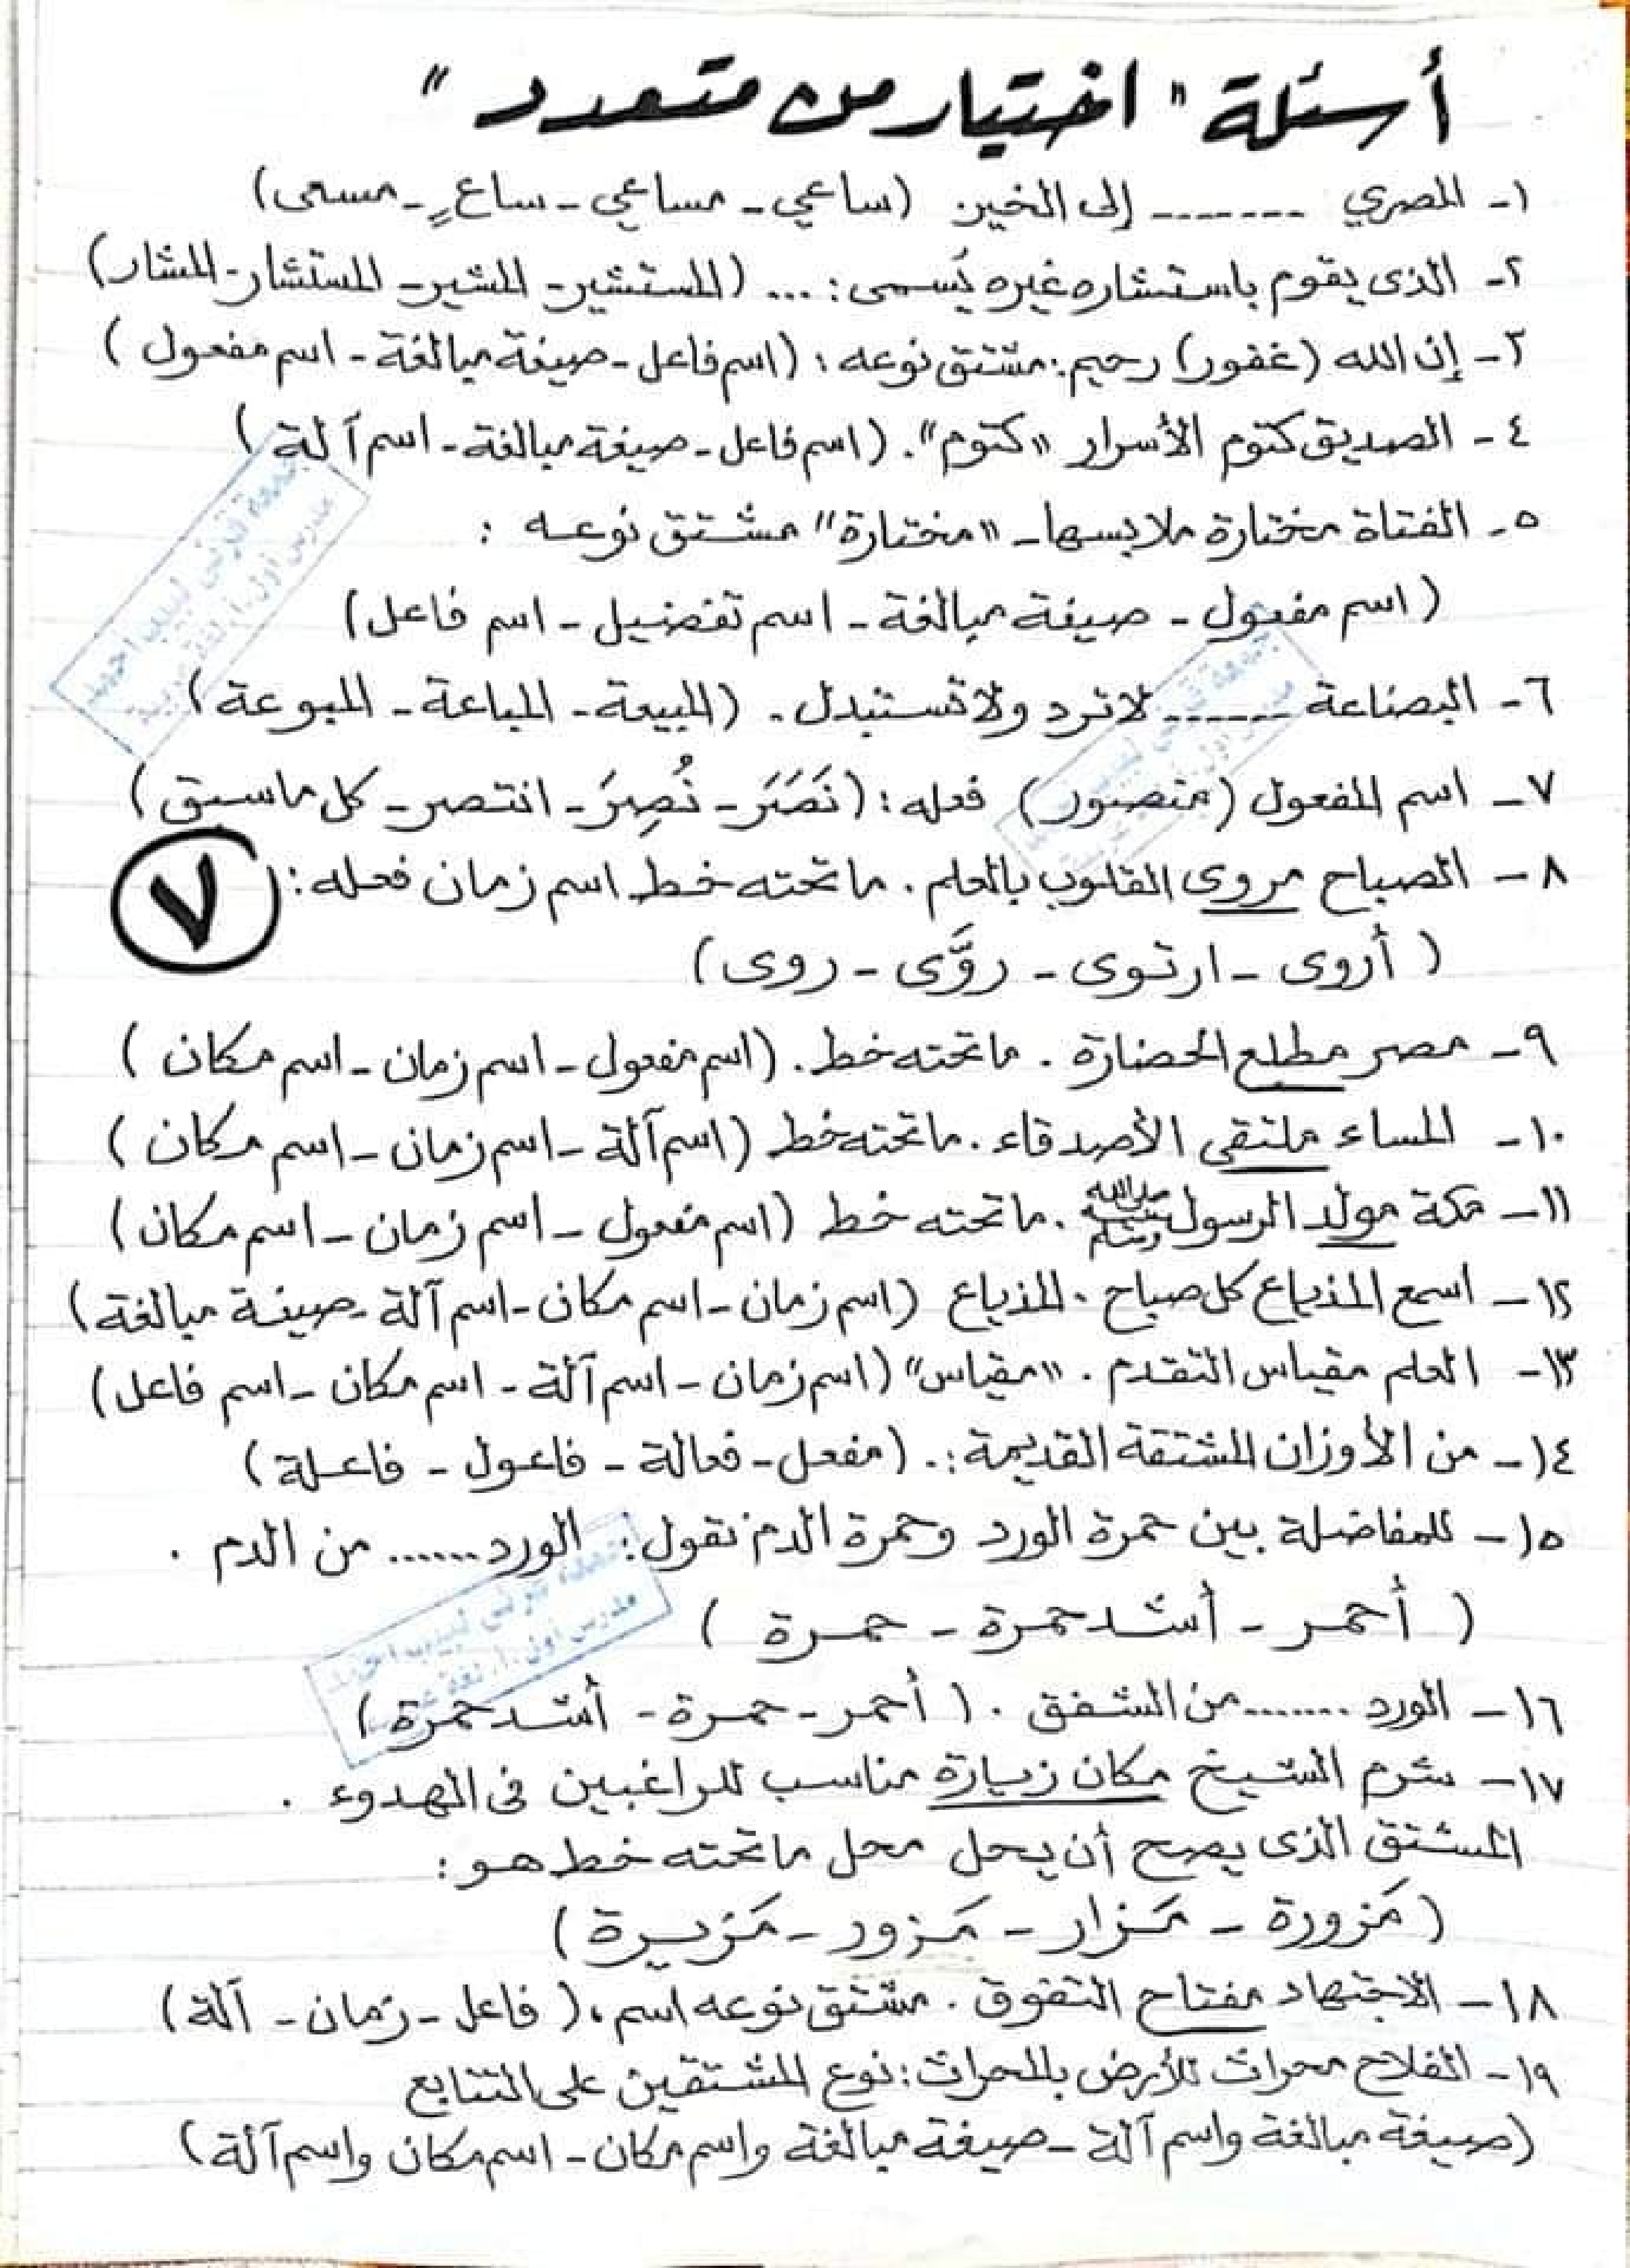 أسئلة "اختيار من متعدد"
١- المصري ------- إلى الخير. (ساعي - مساعي - ساعٍ - مسعى)
٢- الذى يقوم باستشاره غيره يُسمى: ... (المستشير - المشير - المستشار - المشار)
٣- إن الله (غفور) رحيم: مشتق نوعه: (اسم فاعل - صيغة مبالغة - اسم مفعول)
٤- الصديق كتوم الأسرار "كتوم". (اسم فاعل - صيغة مبالغة - اسم آلة)
٥- الفتاة مختارة ملابسها - "مختارة" مشتق نوعه :
(اسم مفعول - صيغة مبالغة - اسم تفضيل - اسم فاعل)
٦- البضاعة ------ لا ترد ولا تستبدل. (المبيعة - المباعة - المبوعة)
٧- اسم المفعول (منصور) فعله: (نَصَرَ - نُصِرَ - انتصر - كل ما سبق)
٨- الصباح مروى القلوب بالعلم. ما تحته خط اسم زمان فعله:
٧
(أروى - ارتوى - روَّى - روى)
٩- مصر مطلع الحضارة. ما تحته خط. (اسم مفعول - اسم زمان - اسم مكان)
١٠- المساء ملتقى الأصدقاء. ما تحته خط (اسم آلة - اسم زمان - اسم مكان)
١١- مكة مولد الرسول صلى الله عليه وسلم. ما تحته خط (اسم مفعول - اسم زمان - اسم مكان)
١٢- اسمع المذياع كل صباح. المذياع (اسم زمان - اسم مكان - اسم آلة - صيغة مبالغة)
١٣- العلم مقياس التقدم. "مقياس" (اسم زمان - اسم آلة - اسم مكان - اسم فاعل)
١٤- من الأوزان المشتقة القديمة:. (مفعل - فعالة - فاعول - فاعلة)
١٥- للمفاضلة بين حمرة الورد وحمرة الدم نقول: الورد ...... من الدم.
(أحمر - أشد حمرة - حمرة)
١٦- الورد ....... من الشفق. (أحمر - حمرة - أشد حمرة)
١٧- شرم الشيخ مكان زيارة مناسب للراغبين فى الهدوء.
المشتق الذى يصح أن يحل محل ما تحته خط هو:
(مَزورة - مَزار - مَزور - مَزيرة)
١٨- الاجتهاد مفتاح التفوق. مشتق نوعه اسم، (فاعل - زمان - آلة)
١٩- الفلاح محراث للأرض بالمحراث: نوع المشتقين على التتابع
(صيغة مبالغة واسم آلة - صيغة مبالغة واسم مكان - اسم مكان واسم آلة)